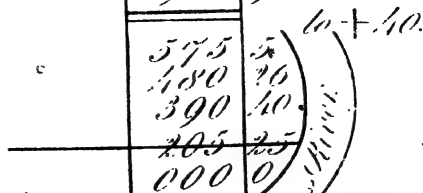 to + 40.
575 5
480 26
390 40.
205 25
000 0
River